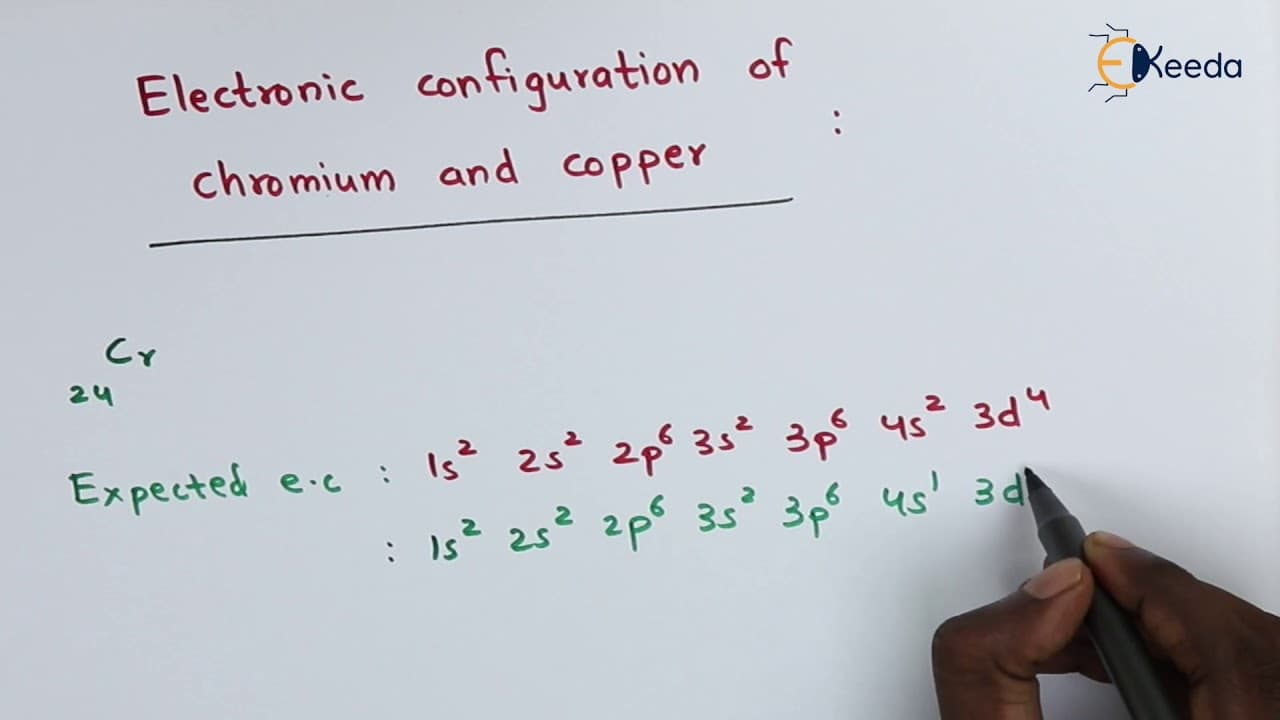 EKeeda
Electronic configuration of
chromium and copper :
Cr
24
Expected e.c : 1s² 2s² 2p⁶ 3s² 3p⁶ 4s² 3d⁴
: 1s² 2s² 2p⁶ 3s² 3p⁶ 4s¹ 3d